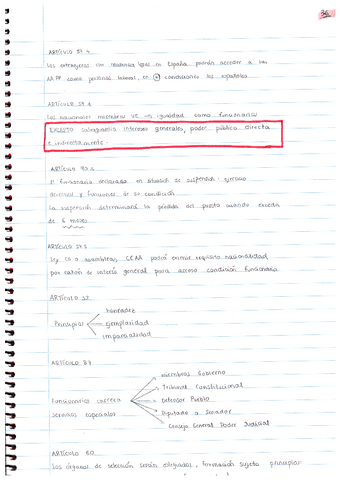 36
ARTÍCULO 57.4
Los extranjeros con residencia legal en España podrán acceder a las
AAPP como personal laboral, en = condiciones los españoles
ARTÍCULO 57.1
Los nacionales miembros UE → igualdad como funcionarios
EXCEPTO salvaguardia intereses generales, poder público directa
e indirectamente.
ARTÍCULO 90.
funcionario declarado en situación de suspensión: ejercicio
derechos y funciones de su condición
La suspensión determinará la pérdida del puesto cuando exceda
de 6 meses
ARTÍCULO 57.5
Ley CG o asambleas CCAA podrá eximir requisito nacionalidad
por razón de interés general para acceso condición funcionario
ARTÍCULO 52
Principios
honradez
ejemplaridad
imparcialidad
ARTÍCULO 87
Funcionarios carrera
servicios especiales
miembros Gobierno
Tribunal Constitucional
Defensor Pueblo
Diputado o Senador
Consejo General Poder Judicial
ARTÍCULO 60
Los órganos de selección serán colegiados, formación sujeta principios